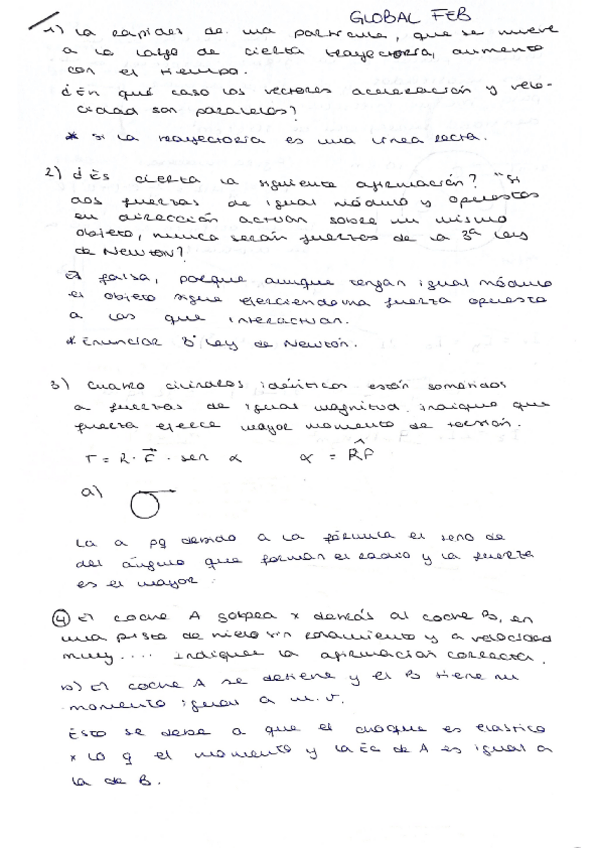 GLOBAL FEB
1) La rapidez de una partícula, que se mueve
a lo largo de cierta trayectoria, aumenta
con el tiempo.
¿En qué caso los vectores aceleración y velo-
cidad son paralelos?
* Si la trayectoria es una línea recta.
2) ¿Es cierta la siguiente afirmación? "Si
dos fuerzas de igual módulo y opuestas
en dirección actúan sobre un mismo
objeto, nunca serán fuerzas de la 3ª ley
de Newton?
Es falsa, porque aunque tengan igual módulo
el objeto sigue ejerciendo una fuerza opuesta
a las que interactúan.
* Enunciar 3ª ley de Newton.
3) Cuatro cilindros idénticos están sometidos
a fuerzas de igual magnitud. indique que
fuerza ejerce mayor momento de torsión.
T = R · F · sen α α = RF
a)
La a pq debido a la fórmula el seno de
del ángulo que forman el radio y la fuerza
es el mayor.
4) El coche A golpea x detrás al coche B, en
una pista de hielo sin rozamiento y a velocidad
muy.... Indique la afirmación correcta.
b) El coche A se detiene y el B tiene un
momento igual a m.v.
Esto se debe a que el choque es elástico
x lo q el momento y la Ec de A es igual a
la de B.